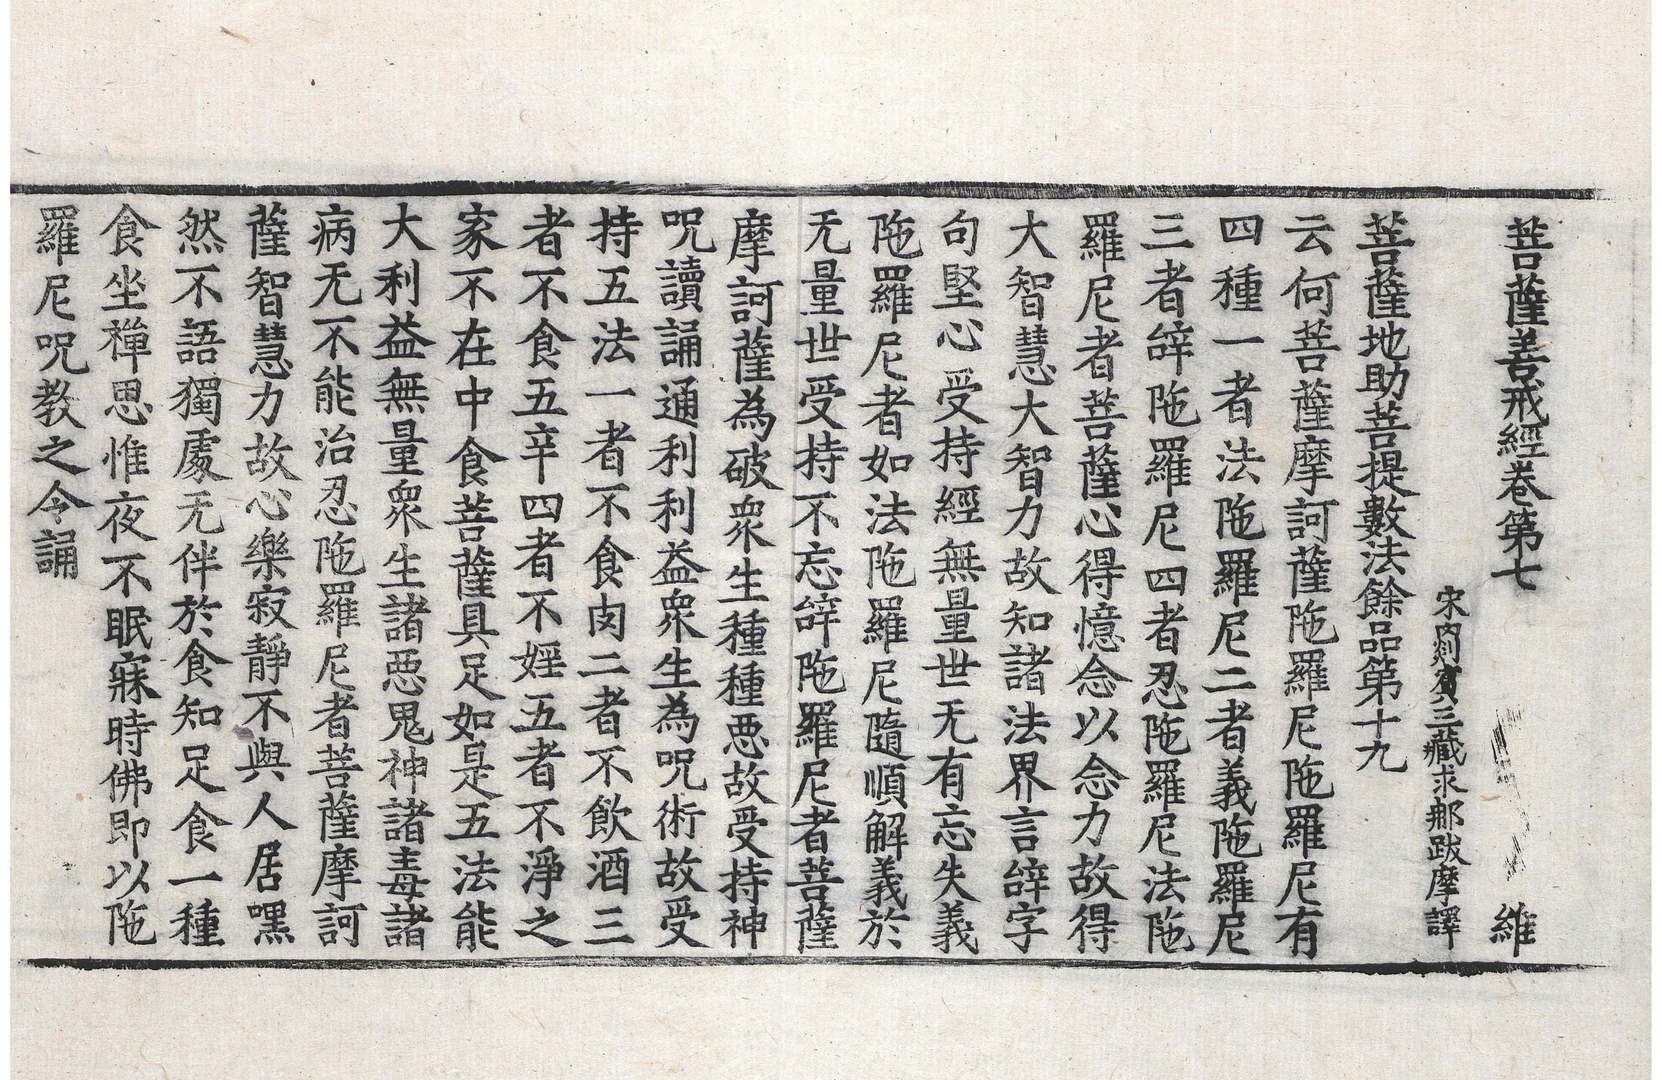 菩薩善戒經卷第七　維
宋罽賓三藏求那跋摩譯
菩薩地助菩提數法餘品第十九
云何菩薩摩訶薩陁羅尼陁羅尼有
四種一者法陁羅尼二者義陁羅尼
三者辝陁羅尼四者忍陁羅尼法陁
羅尼者菩薩心得憶念以念力故得
大智慧大智力故知諸法界言辝字
句堅心受持經無量世无有忘失義
陁羅尼者如法陁羅尼隨順解義於
无量世受持不忘辝陁羅尼者菩薩
摩訶薩為破衆生種種惡故受持神
呪讀誦通利利益衆生為呪術故受
持五法一者不食肉二者不飲酒三
者不食五辛四者不婬五者不淨之
家不在中食菩薩具足如是五法能
大利益無量衆生諸惡鬼神諸毒諸
病无不能治忍陁羅尼者菩薩摩訶
薩智慧力故心樂寂靜不與人居嘿
然不語獨處无伴於食知足食一種
食坐禪思惟夜不眠寐時佛即以陁
羅尼呪教之令誦